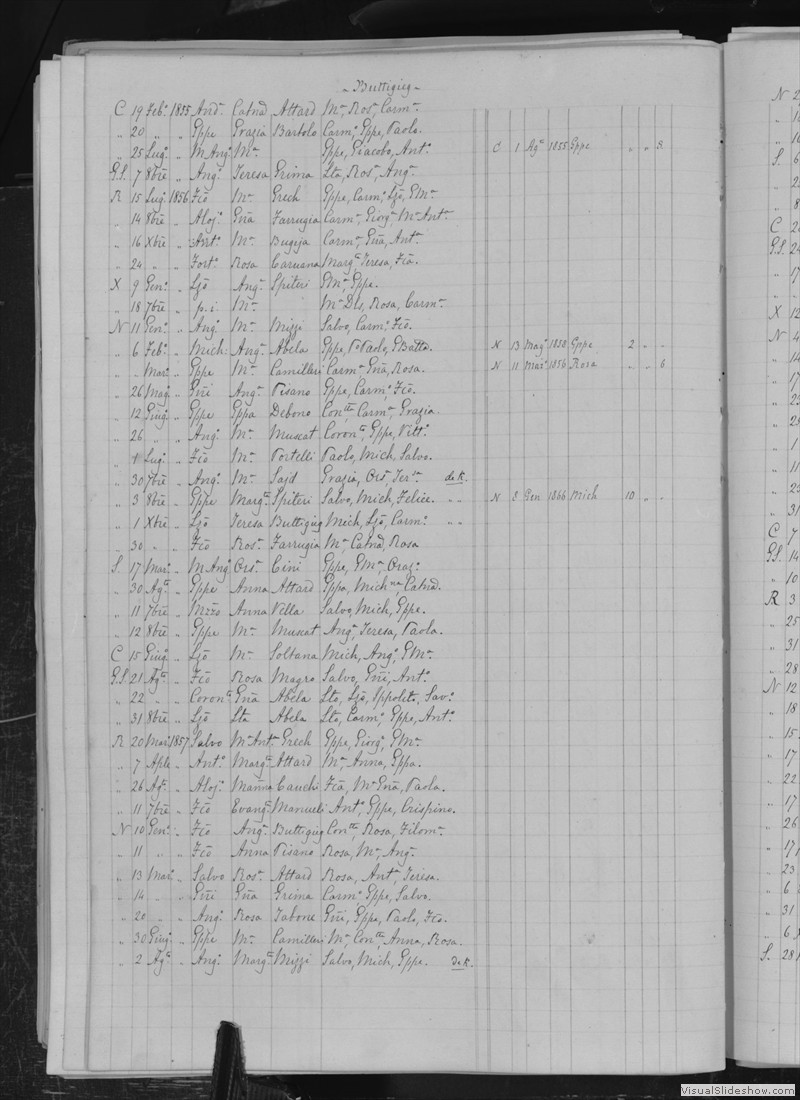 Buttigieg
C 19 Feb. 1855 And. Catnа Attard Mr, Ros, Carm.
" 20 " " Gppe Grazia Bartolo Carm, Gppe, Paolo.
" 25 Lug. " M Ang. Mr Gppe, Giacobo, Ant. C 1 Ag. 1855 Gppe " " 8
GS. 7 8bre " Ang. Teresa Grima Lta, Ros, Ang.
R 15 Lug. 1856 Fco Mr Grech Gppe, Carm, Ljo, GMr.
" 14 8bre " Aloj. Gna Farrugia Carm, Giorg, Mr Ant.
" 16 Xbre " Ant. Mr Bugeja Carm, Gna, Ant.
" 24 " " Fort. Rosa Caruana Marg. Teresa, Fca.
X 9 Gen. " Ljo Ang. Spiteri GMr, Gppe.
" 18 7bre " p. i Mr Mr Dls, Rosa, Carm.
N 11 Gen. " Ang. Mr Mizzi Salvo, Carm, Fco.
" 6 Feb. " Mich: Ang. Abela Gppe, P. Paolo, GBatta. N 13 Mag. 1850 Gppe 2 " "
" " Mar. " Gppe Mr Camilleri Carm, Gna, Rosa. N 11 Mar. 1856 Rosa " " 6
" 26 Mag. " Gni Ang. Pisano Gppe, Carm, Fco.
" 12 Giug. " Gppe Gppa Debono Con.tta Carm. Grazia.
" 26 " " Ang. Mr Muscat Coron, Gppe, Vitt.
" 1 Lug. " Fco Mr Portelli Paolo, Mich, Salvo.
" 30 7bre " Ang. Mr Sajd Grazia, Ors, Ter. de K.
" 3 8bre " Gppe Marg. Spiteri Salvo, Mich, Felice. " " N 8 Gen 1866 Mich 10 " "
" 1 Xbre " Ljo Teresa Buttigieg Mich, Ljo, Carm. " "
" 30 " " Fco Ros. Farrugia Mr, Catna, Rosa
S. 17 Mar. " M Ang. Ors. Cini Gppe, GMr, Oraz.
" 30 Ag. " Gppe Anna Attard Gppa, Mich.na, Catnd.
" 11 7bre " Nzzo Anna Vella Salvo, Mich, Gppe.
" 12 8bre " Gppe Mr Muscat Ang. Teresa, Paola.
C 15 Giug. " Ljo Mr Soltana Mich, Ang. GMr.
GS 21 Ag. " Fco Rosa Magro Salvo, Gni, Ant.
" 22 " " Coron. Gna Abela Lto, Ljo, Ippolito, Sav.
" 31 8bre " Ljo Lta Abela Lto, Carm, Gppe, Ant.
R 20 Mar. 1857 Salvo Mr Ant. Grech Gppe, Giorg. GMr.
" 7 Aple " Ant. Marg. Attard Mr, Anna, Gppa.
" 26 Ag. " Aloj. Marina Cauchi Fca, Mr Gna, Paola.
" 11 7bre " Fco Evang. Manueli Ant. Gppe, Crispino.
N 10 Gen. " Fco Ang. Buttigieg Con.tta, Rosa, Filom.
" 11 " " Fco Anna Pisano Rosa, Mr, Ang.
" 13 Mar. " Salvo Ros. Attard Rosa, Ant. Teresa.
" 14 " " Gni Gna Grima Carm. Gppe, Salvo.
" 20 " " Ang. Rosa Tabone Gni, Gppa, Paolo, Fco.
" 30 Giug. " Gppe Mr Camilleri Mr, Con.tta, Anna, Rosa.
" 2 Ag. " Ang. Marg. Mizzi Salvo, Mich, Gppe. de K.
VisualSlideshow.com